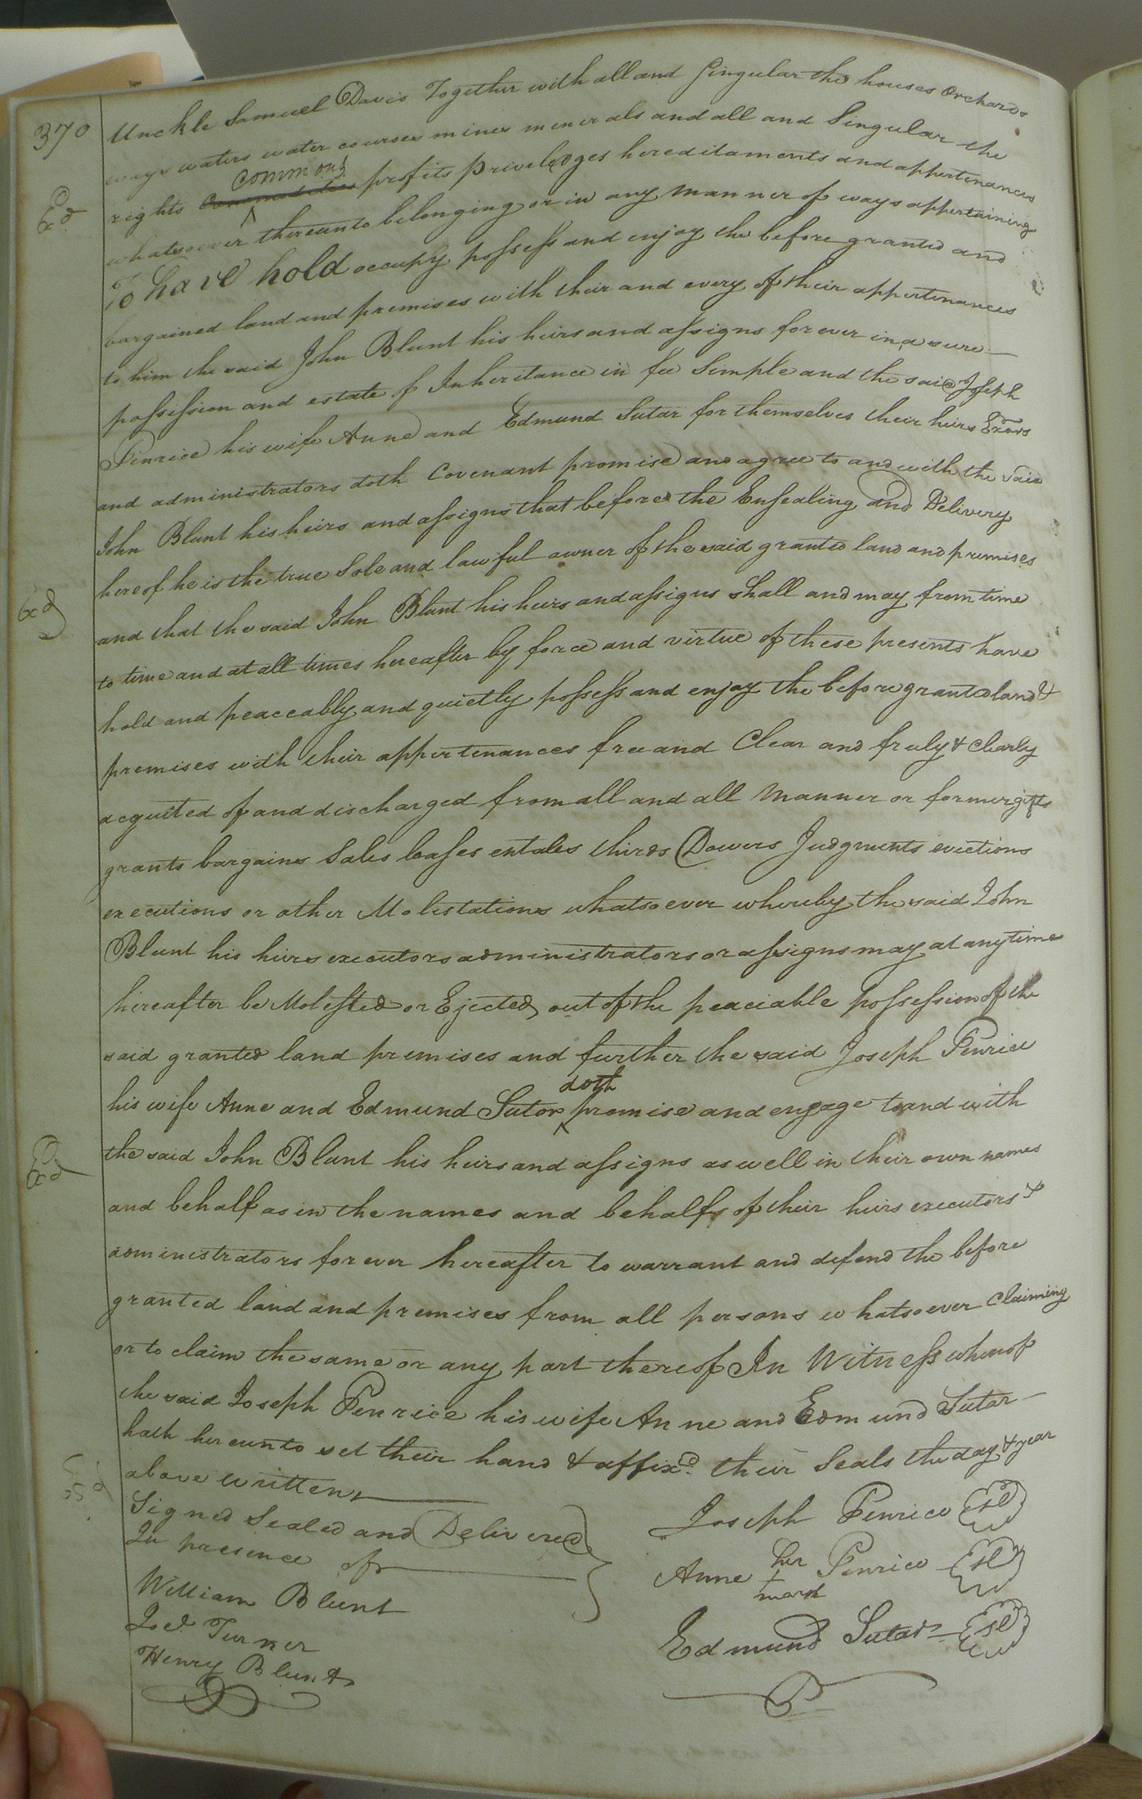 370
Unckle Samuel Davis Together with all and Singular the houses Orchards
ways waters water courses mines minerals and all and Singular the
commons
rights Commodities profits priveledges hereditaments and appertenances
whatsoever thereunto belonging or in any manner of ways appertaining
To have hold occupy possess and enjoy the before granted and
bargained land and premises with their and every of their appertenances
to him the said John Blunt his heirs and assigns forever in a sure
possission and estate of Inheritance in fee Simple and the said Joseph
Penrice his wife Anne and Edmund Sutar for themselves their heirs Exors
and administrators doth Covenant promise and agree to and with the said
John Blunt his heirs and assigns that before the Ensealing and Delivery
hereof he is the true Sole and lawful owner of the said granted land and premises
and that the said John Blunt his heirs and assigns shall and may from time
to time and at all times hereafter by force and virtue of these presents have
hold and peaceably and quietly possess and enjoy the before granted land &
premises with their appertenances free and Clear and freely & clearly
acquited of and discharged from all and all manner or former gifts
grants bargains Sales leases entales thirds Dowers Judgments evictions
executions or other Molistations whatsoever whereby the said John
Blunt his heirs executors administrators or assigns may at anytime
hereafter be Molisted or Ejected out of the peaciable possession of the
said granted land premises and further the said Joseph Penrice
doth
his wife Anne and Edmund Sutor promise and engage to and with
the said John Blunt his heirs and assigns as well in their own names
and behalf as in the names and behalfs of their heirs executors &
administrators forever hereafter to warrant and defend the before
granted land and premises from all persons whatsoever claiming
or to claim the same or any part thereof In Witness whereof
the said Joseph Penrice his wife Anne and Edmund Sutar
hath hereunto set their hand & affixd. their Seals the day & year
above written
Signed Sealed and Delivered
In presence of
William Blunt
Joel Turner
Henry Blunt
Joseph Penrice Sel
Anne her mark Penrice Sel
Edmund Sutar Sel